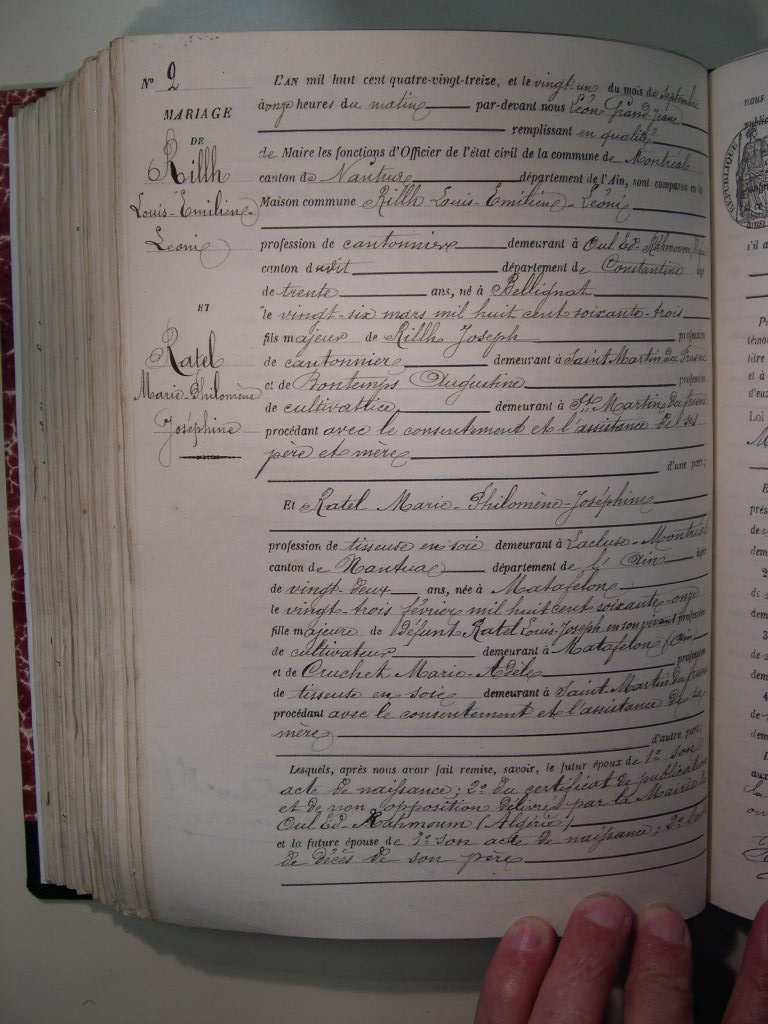 N° 2
MARIAGE
DE
Rillh
Louis-Emilien-
Léoni
ET
Ratel
Marie-Philomène
Joséphine
L'AN mil huit cent quatre-vingt-treize, et le vingt-un du mois de Septembre
à onze heures du matin par-devant nous Léon Grand
remplissant en qualité
de Maire les fonctions d'Officier de l'état civil de la commune de Montréal
canton de Nantua département de l'Ain, sont comparus en la
Maison commune Rillh Louis-Emilien-Léoni
profession de cantonnier demeurant à Oul Ed-Rahmoum
canton dudit département de Constantine âgé
de trente ans, né à Bellignat
le vingt-six mars mil huit cent soixante-trois
fils majeur de Rillh Joseph profession
de cantonnier demeurant à Saint Martin du Fresne
et de Bontemps Augustine profession
de cultivatrice demeurant à St Martin du fresne
procédant avec le consentement et l'assistance de ses
père et mère
d'une part;
Et Ratel Marie-Philomène-Joséphine
profession de tisseuse en soie demeurant à Lacluse-Montréal
canton de Nantua département de l'Ain âgée
de vingt-deux ans, née à Matafelon
le vingt-trois février mil huit cent soixante-onze
fille majeure de défunt Ratel Louis-Joseph en son vivant profession
de cultivateur demeurant à Matafelon (Ain
et de Cruchet Marie-Adèle profession
de tisseuse en soie demeurant à Saint-Martin du fresne
procédant avec le consentement et l'assistance de sa
mère
d'autre part;
Lesquels, après nous avoir fait remise, savoir, le futur époux de 1° son
acte de naissance; 2° du certificat de publication
et de non opposition délivré par la Mairie de
Oul Ed-Rahmoum (Algérie)
et la future épouse de 1° son acte de naissance; 2°
de décès de son père
nous
publi
REPUBLIQUE
s'il a
témo
et à
d'eu
Loi